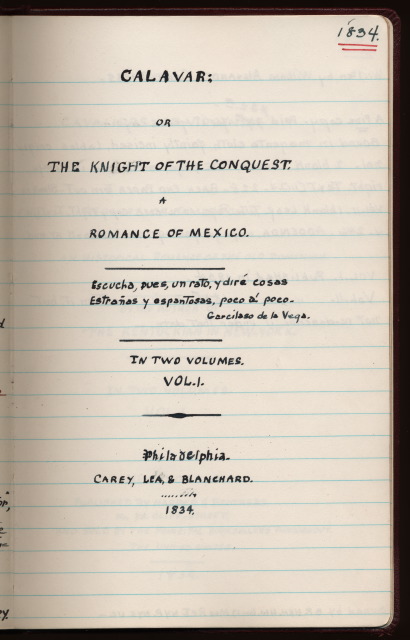 1834.
CALAVAR;
OR
THE KNIGHT OF THE CONQUEST.
A
ROMANCE OF MEXICO.
Escucha, pues, un rato, y diré cosas
Estrañas y espantosas, poco á poco.
Garcilaso de la Vega.
IN TWO VOLUMES.
VOL. I.
Philadelphia.
CAREY, LEA, & BLANCHARD.
1834.